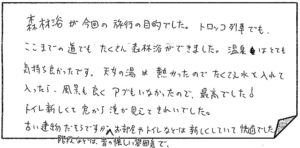 森林浴が今回の旅行の目的でした。トロッコ列車でも、
ここまでの道でもたくさん森林浴ができました。温泉はとても
気持ち良かったです。天女の湯は熱かったのでたくさん水を入れて
入ったら、風景も良くアブもいなかったので、最高でした!
トイレ新しくて窓から滝が見えてきれいでした。
古い建物だそうですが、お部屋やトイレなどは新しくしていて快適でした
階段などは、昔の懐しい雰囲気で、